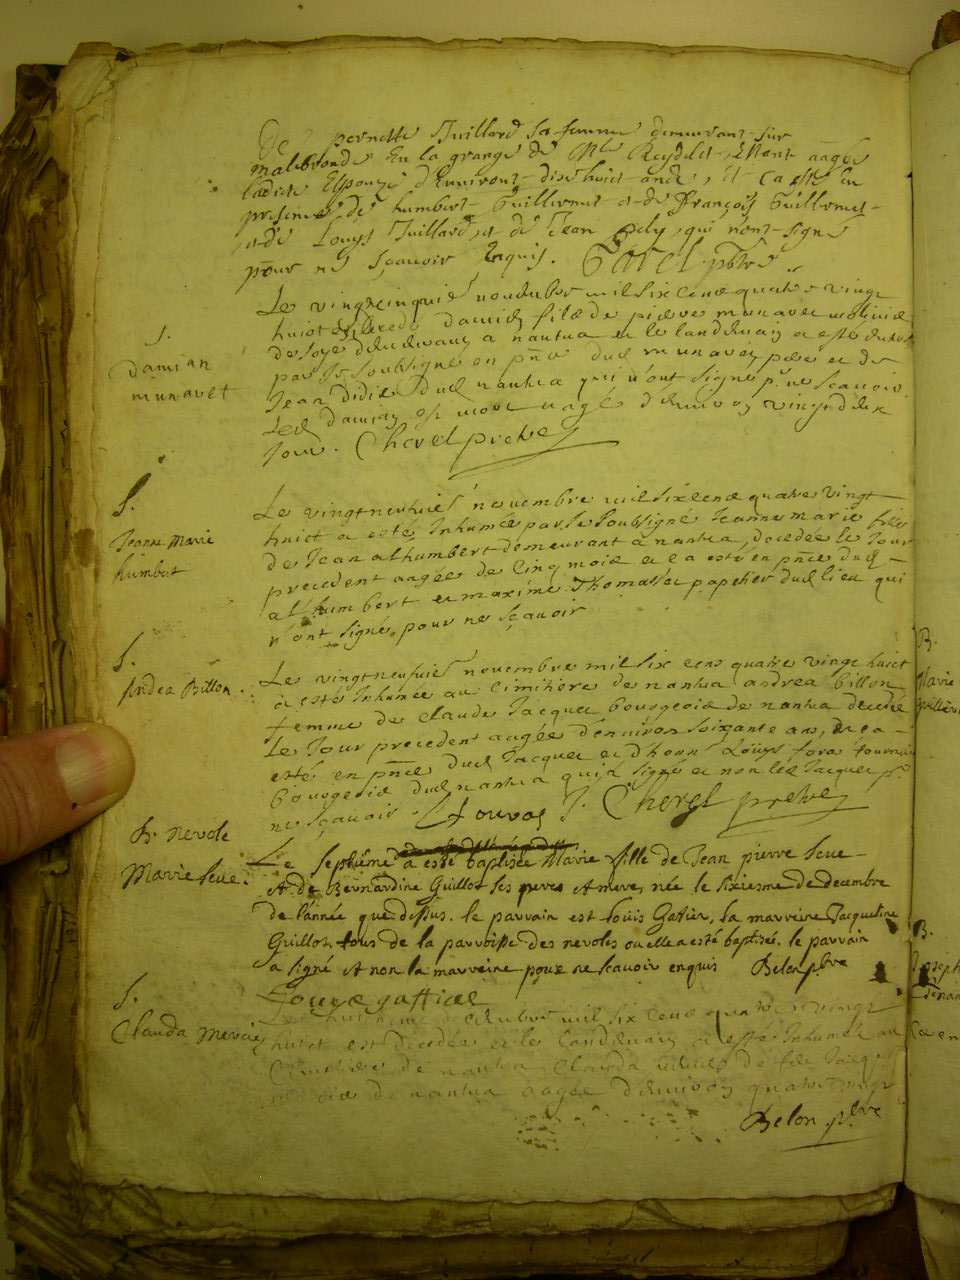 De pernette Juillard sa femme demeurant sur
malebronde en la grange de Mre Reydelet, Estant aagée
ladicte Espouze d'Environt dixhuict ans, Et ça esté en
presence de humbert Guillermet et de François Guillermet
et de Louys Juillard, et de Jean qui n'ont signé
pour ne sçavoir Enquis. Cavel pbtre
S.
Damian
munavet
Le vingtcinquie novembre mil six cens quatre vingt
huict est decedé damien fils de pierre munavet
de soye demeurant a nantua et le landemain a esté
par Je soubsigné en pnce dud munavet pere et de
Jean Didier dud nantua qui n'ont signé pr ne scavoir
Led damien est mort aagé d'environ vingt deux
jour. Cherel prebre
S.
Jeanne Marie
humbert
Le vingtneufvie novembre mil six cens quatre vingt
huict a esté Inhumée par Je soubsigné Jeanne marie fille
de Jean alhumbert demeurant à nantua, decedée le Jour
precedent aagée de cinq mois et ca esté en pnce dud
alhumbert et maxime Thomasset papetier dud lieu qui
n'ont signé pour ne sçavoir
S.
Andrea Billon.
Le vingtneufvie novembre mil six cens quatre vingt huict
à esté Inhumée au cimitiere de nantua andrea billon
femme de claude Jacquet bourgeois de nantua decedée
le Jour precedent aagée d'environ soixante ans, et ca
esté en pnce dud Jacquet et d'honn Louys
bourgeois dud nantua qui a signé et non led Jacquet pr
ne sçavoir Cherel prebre
B. nevole
Marie seve.
Le septiéme a esté baptisée Marie fille de Jean pierre seve
et de Bernardine Guillot ses peres et mere, née le sixiesme de decembre
de l'année que dessus. le parrain est Louis Gatier, la marreine Jacqueline
Guillot, tous de la parroisse des nevoles ou elle a esté baptisée. le parrain
a signé et non la marreine pour ne scavoir enquis Belon pbre
S.
Clauda Mercier
Le huictieme decembre mil six cens quatre vingt
huict est decedée et le landemain a esté Inhumée au
Cimitiere de nantua Clauda de feu Jacques
de nantua aagée d'environ quatre vingt
Belon pbre
B.
Marie
B.
Joseph